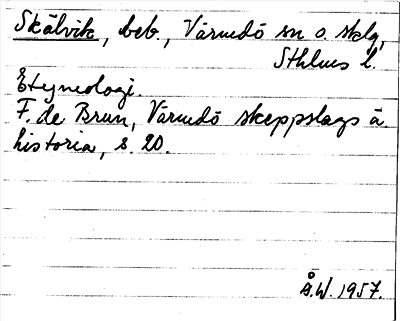 Skälvik, beb., Värmdö sn o. sklg,
Sthlms l.
Etymologi.
F. de Brun, Värmdö skeppslags ä.
historia, s. 20.
Å.W. 1957.